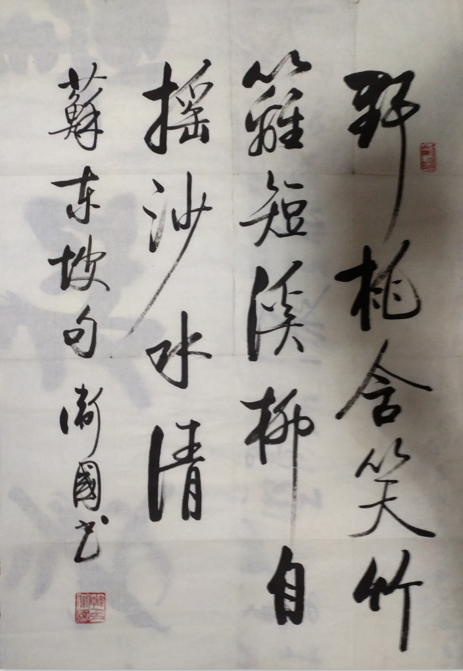 野桃含笑竹
籬短溪柳自
摇沙水清
蘇东坡句 衛國书